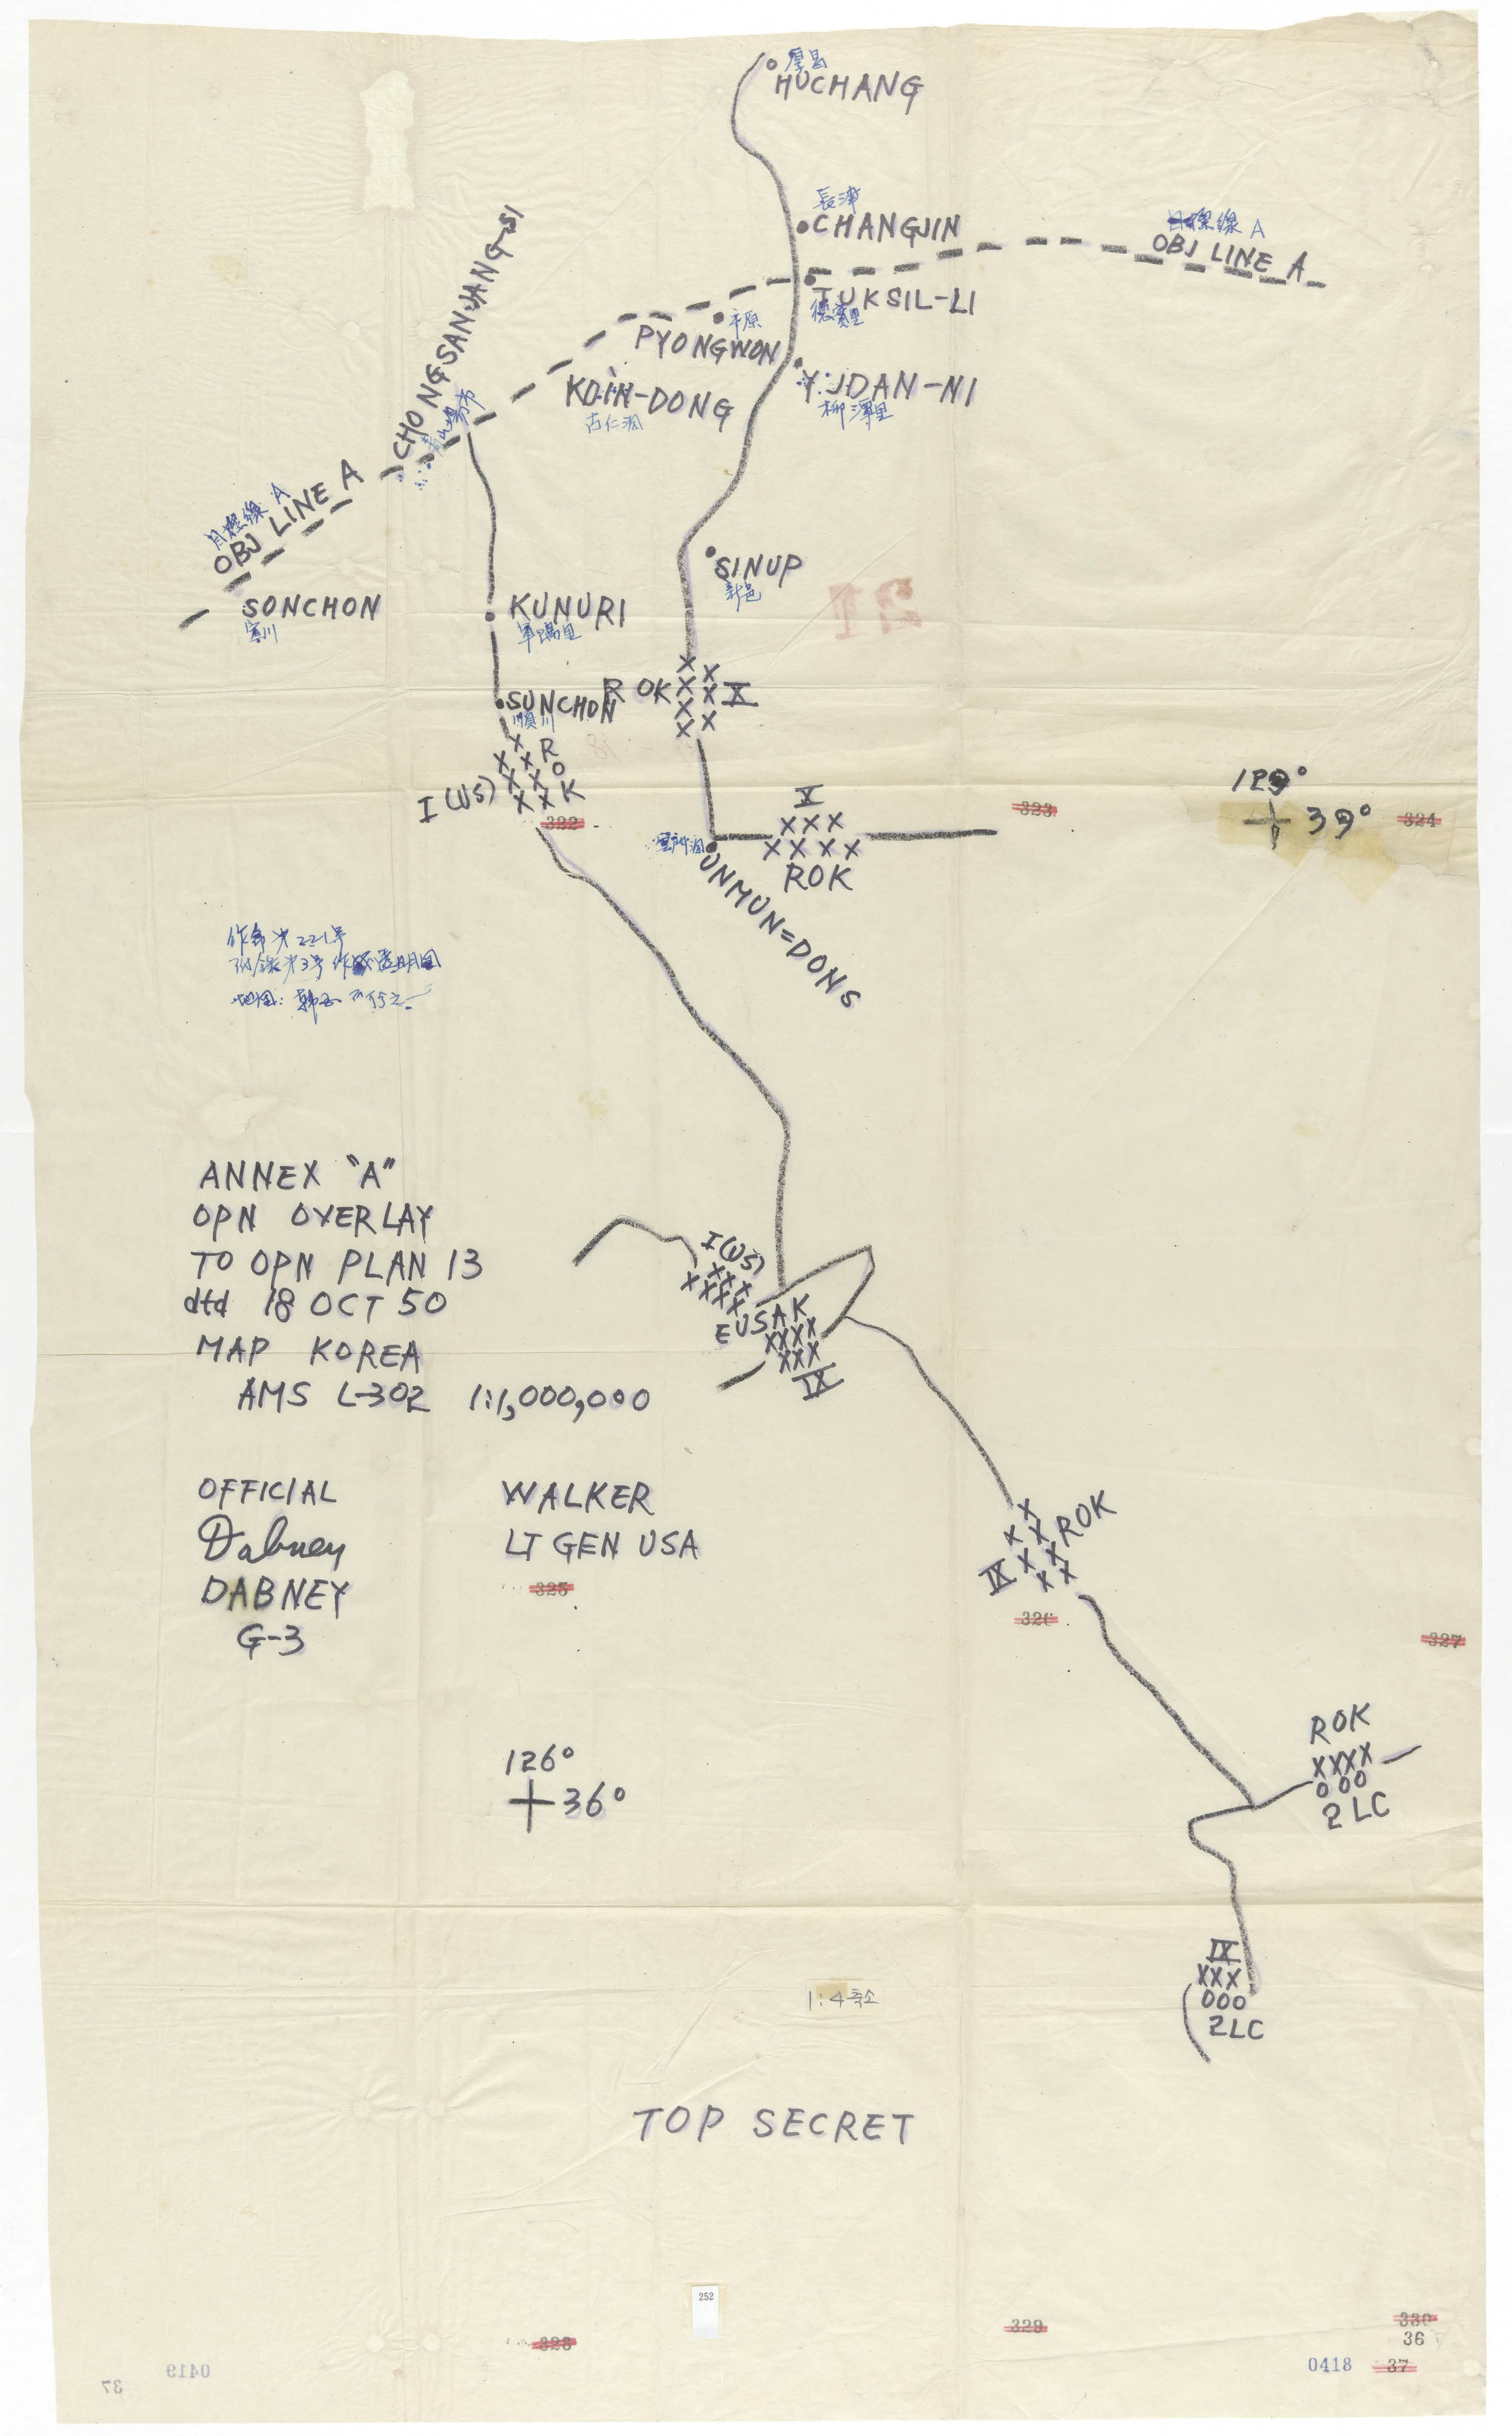 厚昌
HUCHANG
長津
CHANGJIN
目標線 A
OBJ LINE A
TUKSIL-LI
德實里
平原
PYONGWON
YUDAN-NI
柳潭里
KOIN-DONG
古仁洞
CHONGSANJANG-SI
山場市
目標線 A
OBJ LINE A
SONCHON
宣川
SINUP
新邑
KUNURI
軍隅里
SUNCHON
順川
ROK
X
X X
X X
X X
X
X
ROK
XX
XX
XX
X
I (US)
322
323
X
XXX
XXXX
ROK
129°
39°
324
雲門洞
UNMUN=DONS
作命 第221号
地图:
ANNEX "A"
OPN OVERLAY
TO OPN PLAN 13
dtd 18 OCT 50
MAP KOREA
AMS L-302 1:1,000,000
I (US)
XXX
XXXX
EUSAK
XXXX
XXX
IX
OFFICIAL
Dabney
DABNEY
G-3
WALKER
LT GEN USA
325
ROK
XXXX
XXX
IX
326
327
ROK
XXXX
000
2 LC
126°
36°
IX
XXX
000
2LC
1:4 축소
TOP SECRET
252
328
329
330
36
0418
37
0419
37